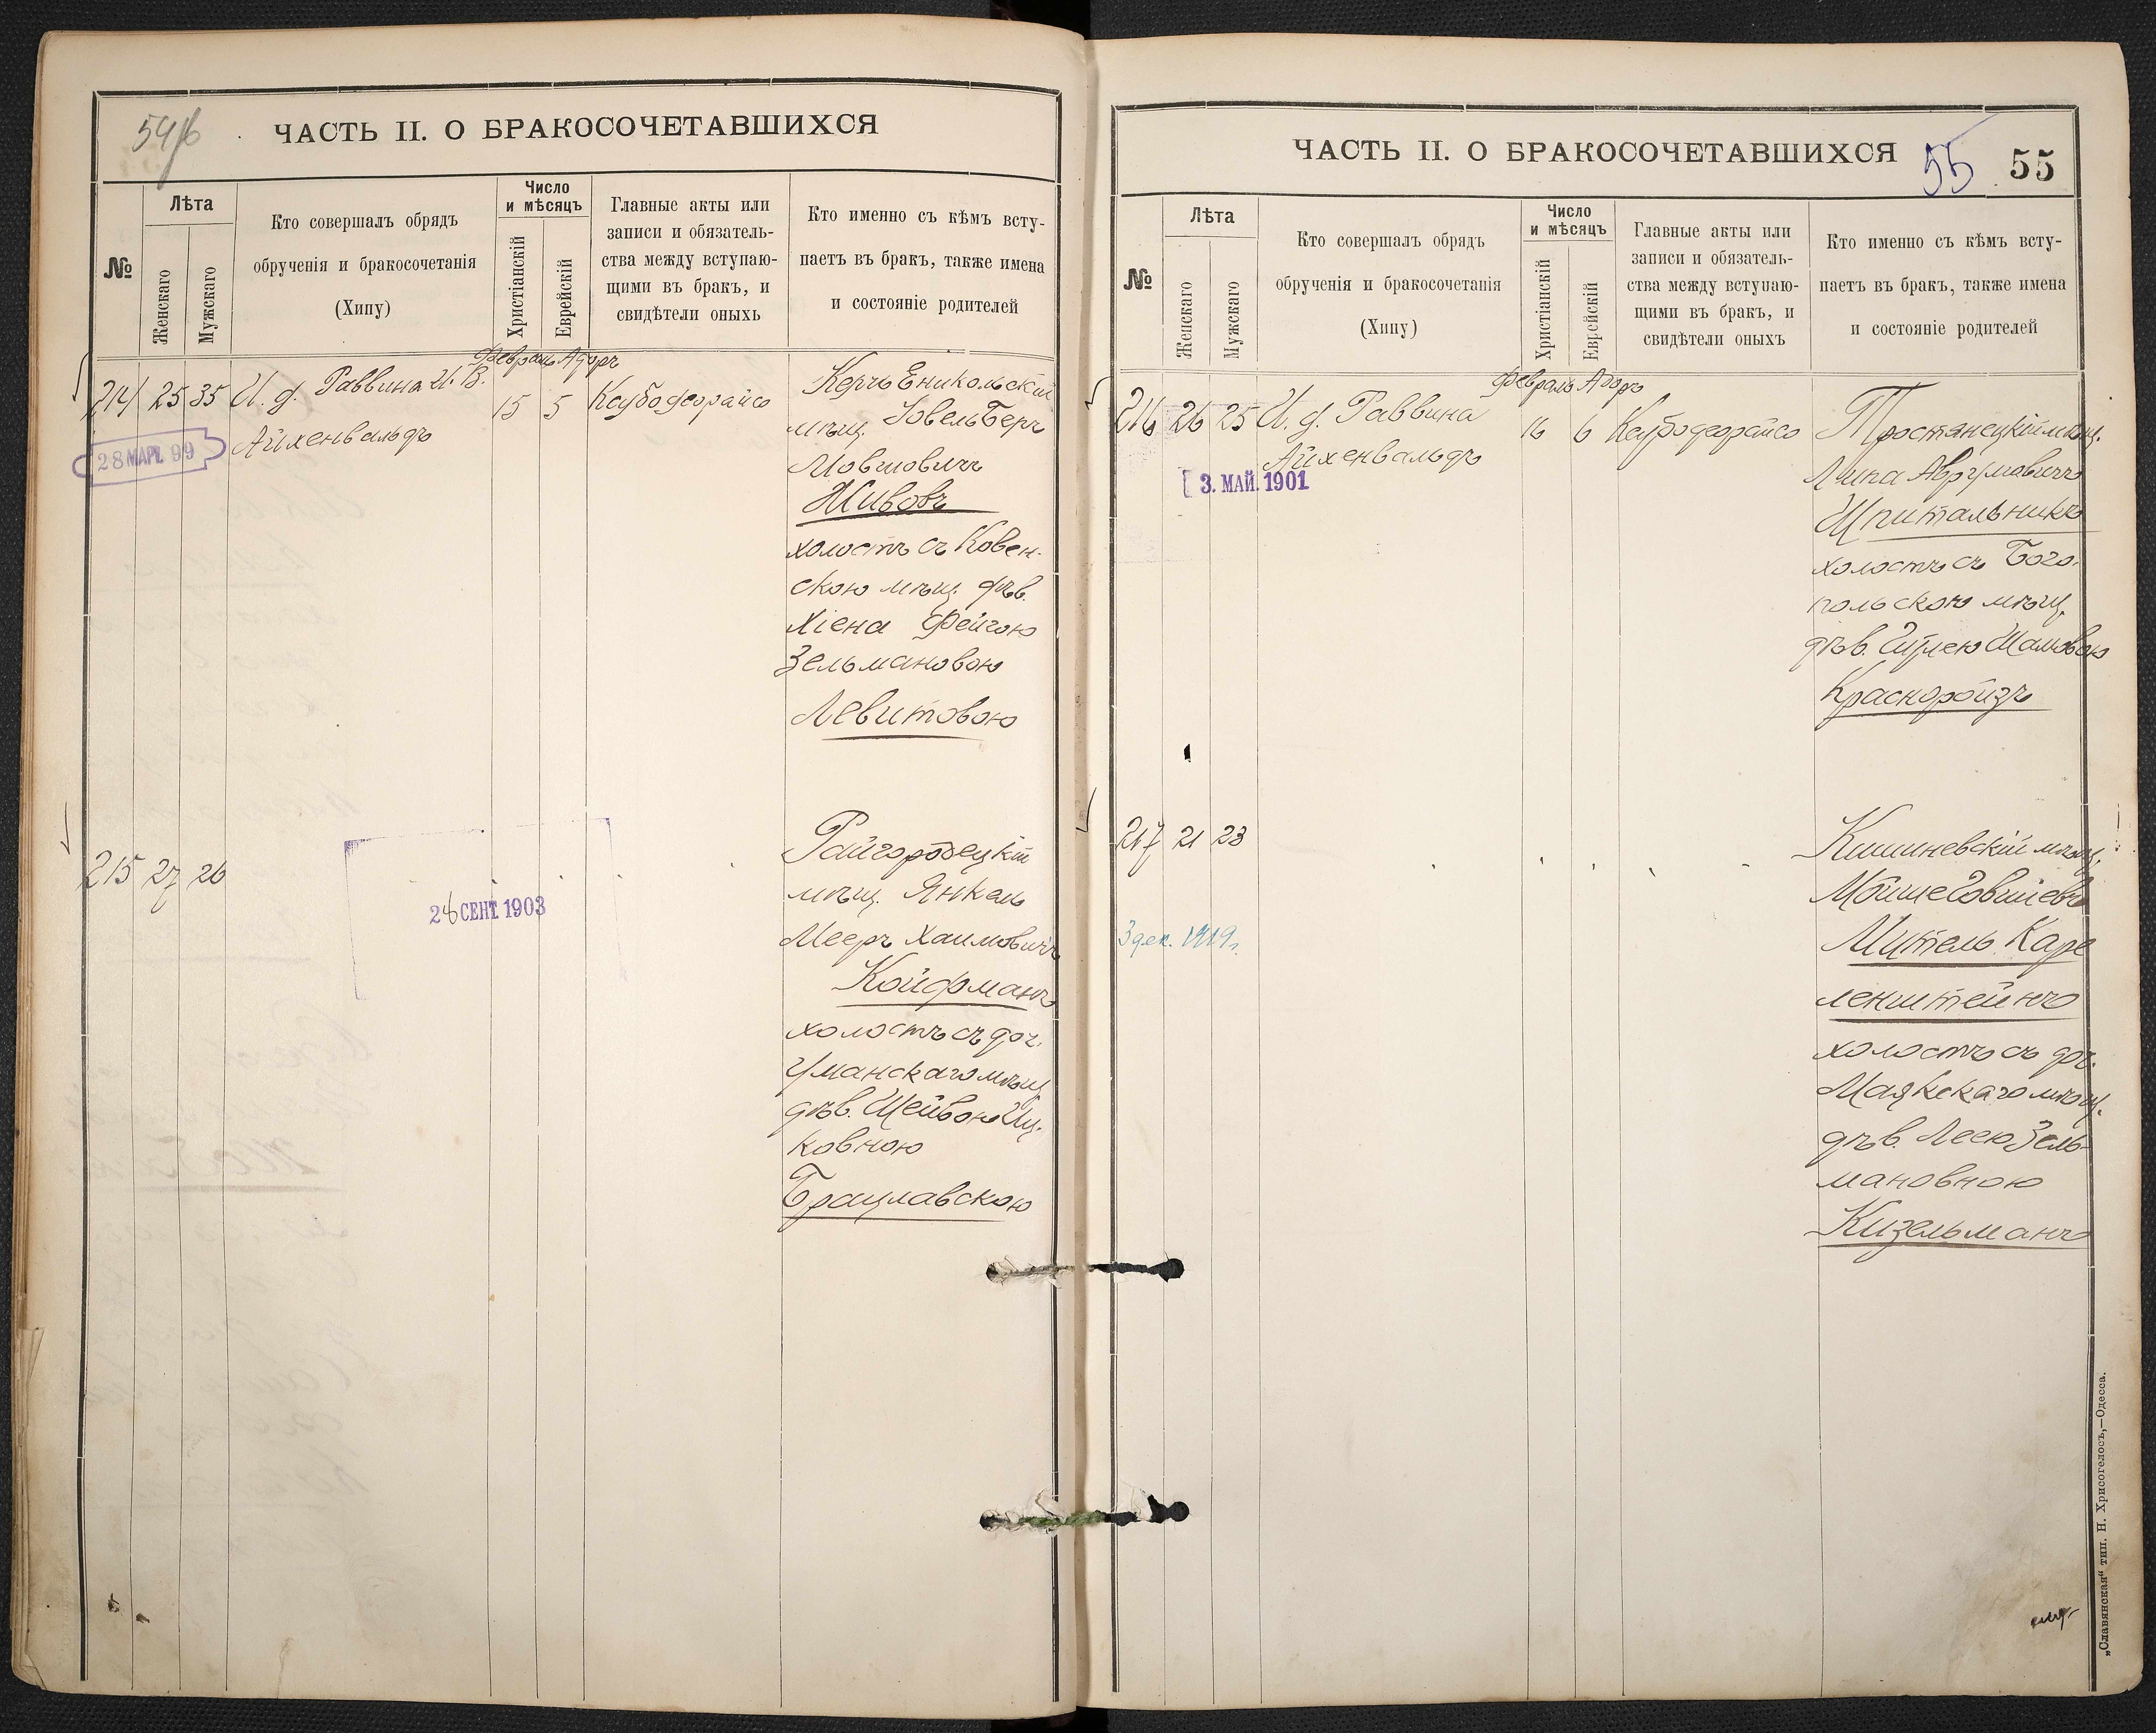 ЧАСТЬ II. О БРАКОСОЧЕТАВШИХСЯ
№
Лѣта
Женскаго
Мужскаго
Кто совершалъ обрядъ
обрученія и бракосочетанія
(Хипу)
Число
и мѣсяцъ
Христіанскій
Еврейскій
Главные акты или
записи и обязатель-
ства между вступаю-
щими въ бракъ, и
свидѣтели оныхъ
Кто именно съ кѣмъ всту-
паетъ въ бракъ, также имена
и состояніе родителей
Февраль Адаръ
214 25 35 И. д. Раввина И. В.
Айхенвальдъ
15 5
28 МАР. 99
Керчь Еникольскій
мѣщ. Іовель Беръ
Мовшовичъ
Живовъ
холостъ съ Ковен-
скою мѣщ. дѣв.
Хіена Фейгою
Зельмановою
Левитовою
215 27 26
28 СЕНТ. 1903
Райгородецкій
мѣщ. Янкель
Мееръ Хаимовичъ
Койфманъ
холостъ съ доч.
Уманскаго мѣщ.
дѣв. Шейвою Иц-
ковною
Брацлавскою
ЧАСТЬ II. О БРАКОСОЧЕТАВШИХСЯ
55 55
№
Лѣта
Женскаго
Мужскаго
Кто совершалъ обрядъ
обрученія и бракосочетанія
(Хипу)
Число
и мѣсяцъ
Христіанскій
Еврейскій
Главные акты или
записи и обязатель-
ства между вступаю-
щими въ бракъ, и
свидѣтели оныхъ
Кто именно съ кѣмъ всту-
паетъ въ бракъ, также имена
и состояніе родителей
Февраль Адаръ
216 26 25 И. д. Раввина
Айхенвальдъ
16 6
3. МАЙ. 1901
Тростянецкій мѣщ.
Липа Аврумовичъ
Шпитальникъ
холостъ съ Бого-
польскою мѣщ.
дѣв. Шамовою
Краснороизъ
217 21 23
3 дек. 1919г.
Кишиневскій мѣщ.
Мойше
Мительъ Каре
ленштейнъ
холостъ съ доч.
Маякскаго мѣщ.
дѣв. Леею Зель-
мановною
Кизельманъ
„Славянская“ тип. Н. Хрисогелосъ,—Одесса.